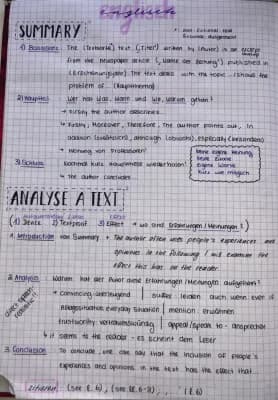 Englisch
SUMMARY
1) Basissatz: The (Textsorte) text („Titel") written by (Autor) is an excerpt
from the newspaper article („Name der Zeitung") published in
(Erscheinungsjahr). The text deals with the topic / shows the
problem of... (Hauptthema)
2) Hauptteil: Wer hat Was, Wann und Wie, Warum getan?
→ Firstly the author describes...
→ Furthermore, Therefore, The author points out, In
addition (zusätzlich), although (obwohl), especially (besonders)
→ Meinung von Professoren?
3) Schluss: Nochmal kurz Hauptthese wiederholen!
→ the author concludes
Keine eigene Meinung
Keine Zitate
Eigene Worte
Kurz wie möglich
ANALYSE A TEXT
(1) Device 2) Textproof 3) Effect → wo sind Erfahrungen/Meinungen?)
1. Introduction von Summary + The author often uses people's experiences and
opinions in the following I will examine the
effect this has on the reader.
2. Analysis: Warum hat der Autor diese Erfahrungen/Meinungen aufgegriffen?
→ convincing-überzeugend | suffer: leiden auch wenn: even if
Alltagssituation: everyday situation | mention: erwähnen
trustworthy: vertrauenswürdig | appeal/speak to - anspreche
↳ it seems to the reader - es scheint dem Leser
3. Conclusion: To conclude, one can say that the inclusion of people's
experiences and opinions in the text has the effect that...
zitieren (see l. 6), (see ll. 6-8), ... (l. 6)